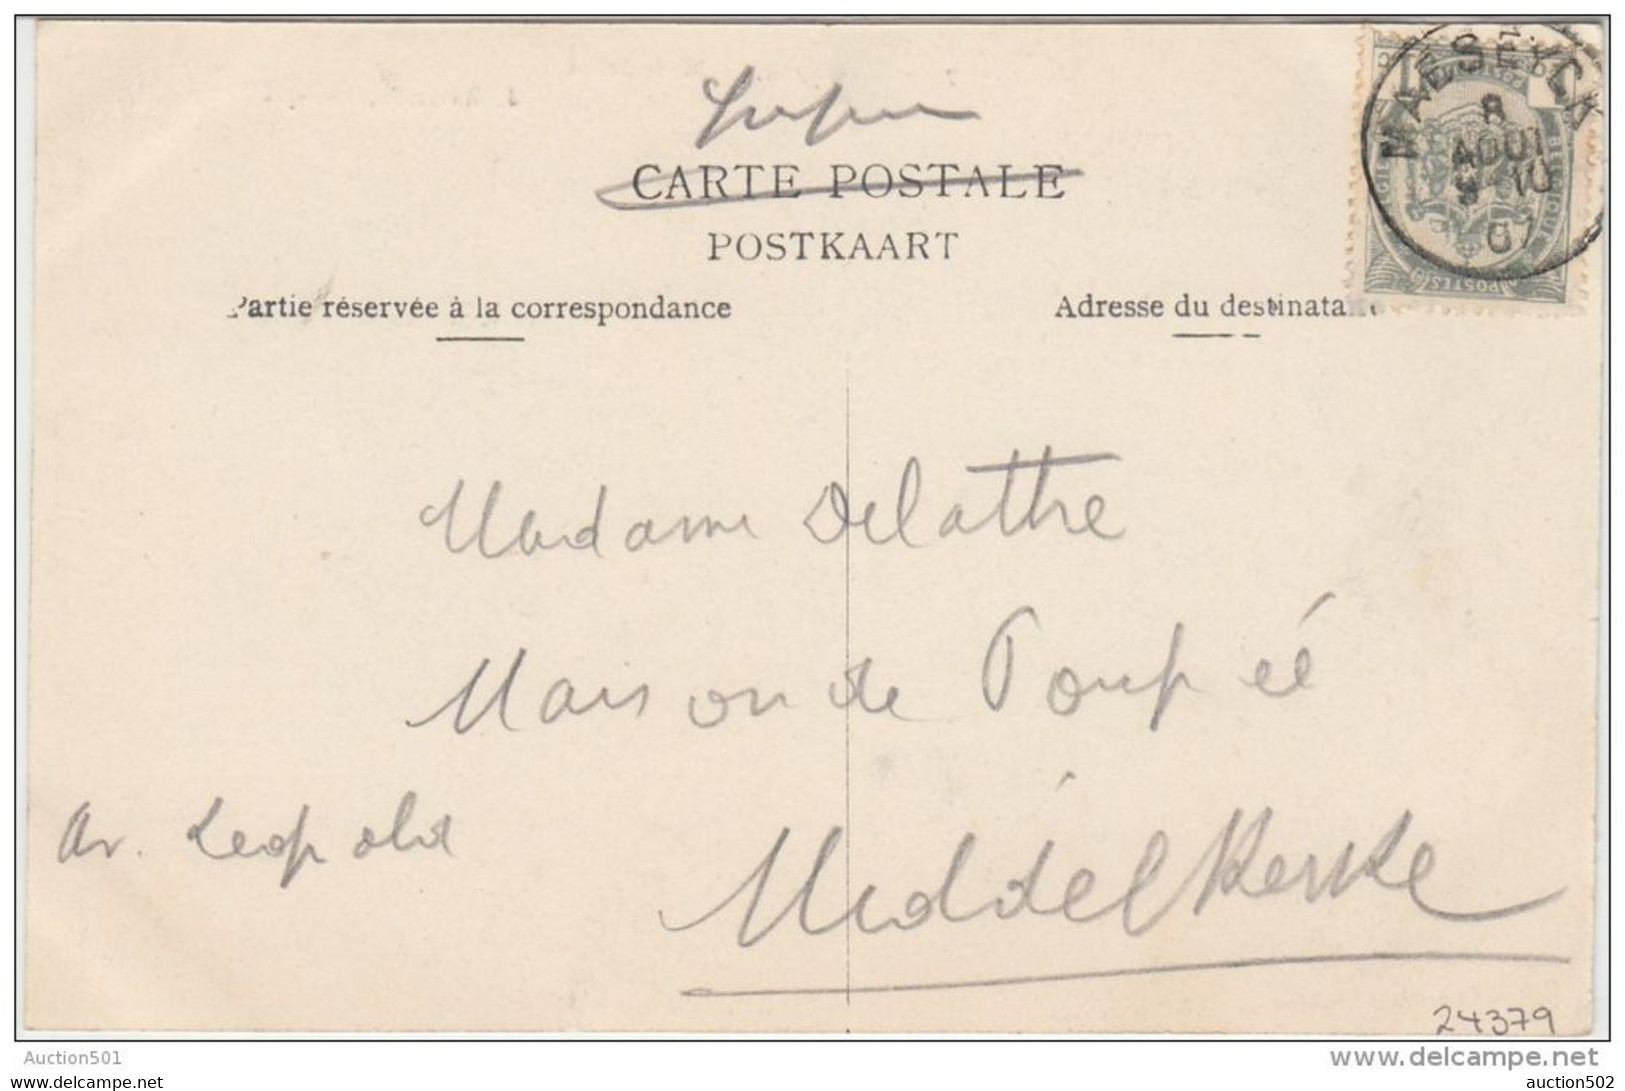 CARTE POSTALE
POSTKAART
Partie réservée à la correspondance
Adresse du destinataire
MAESEYCK
8
AOUT
9-10
07
BELGIQUE
POSTES
Madame Delattre
Maison de Poupéé
Av. Leopold
Middelkerke
24379
Auction501
www.delcampe.net
auction501.delcampe.net
auction502